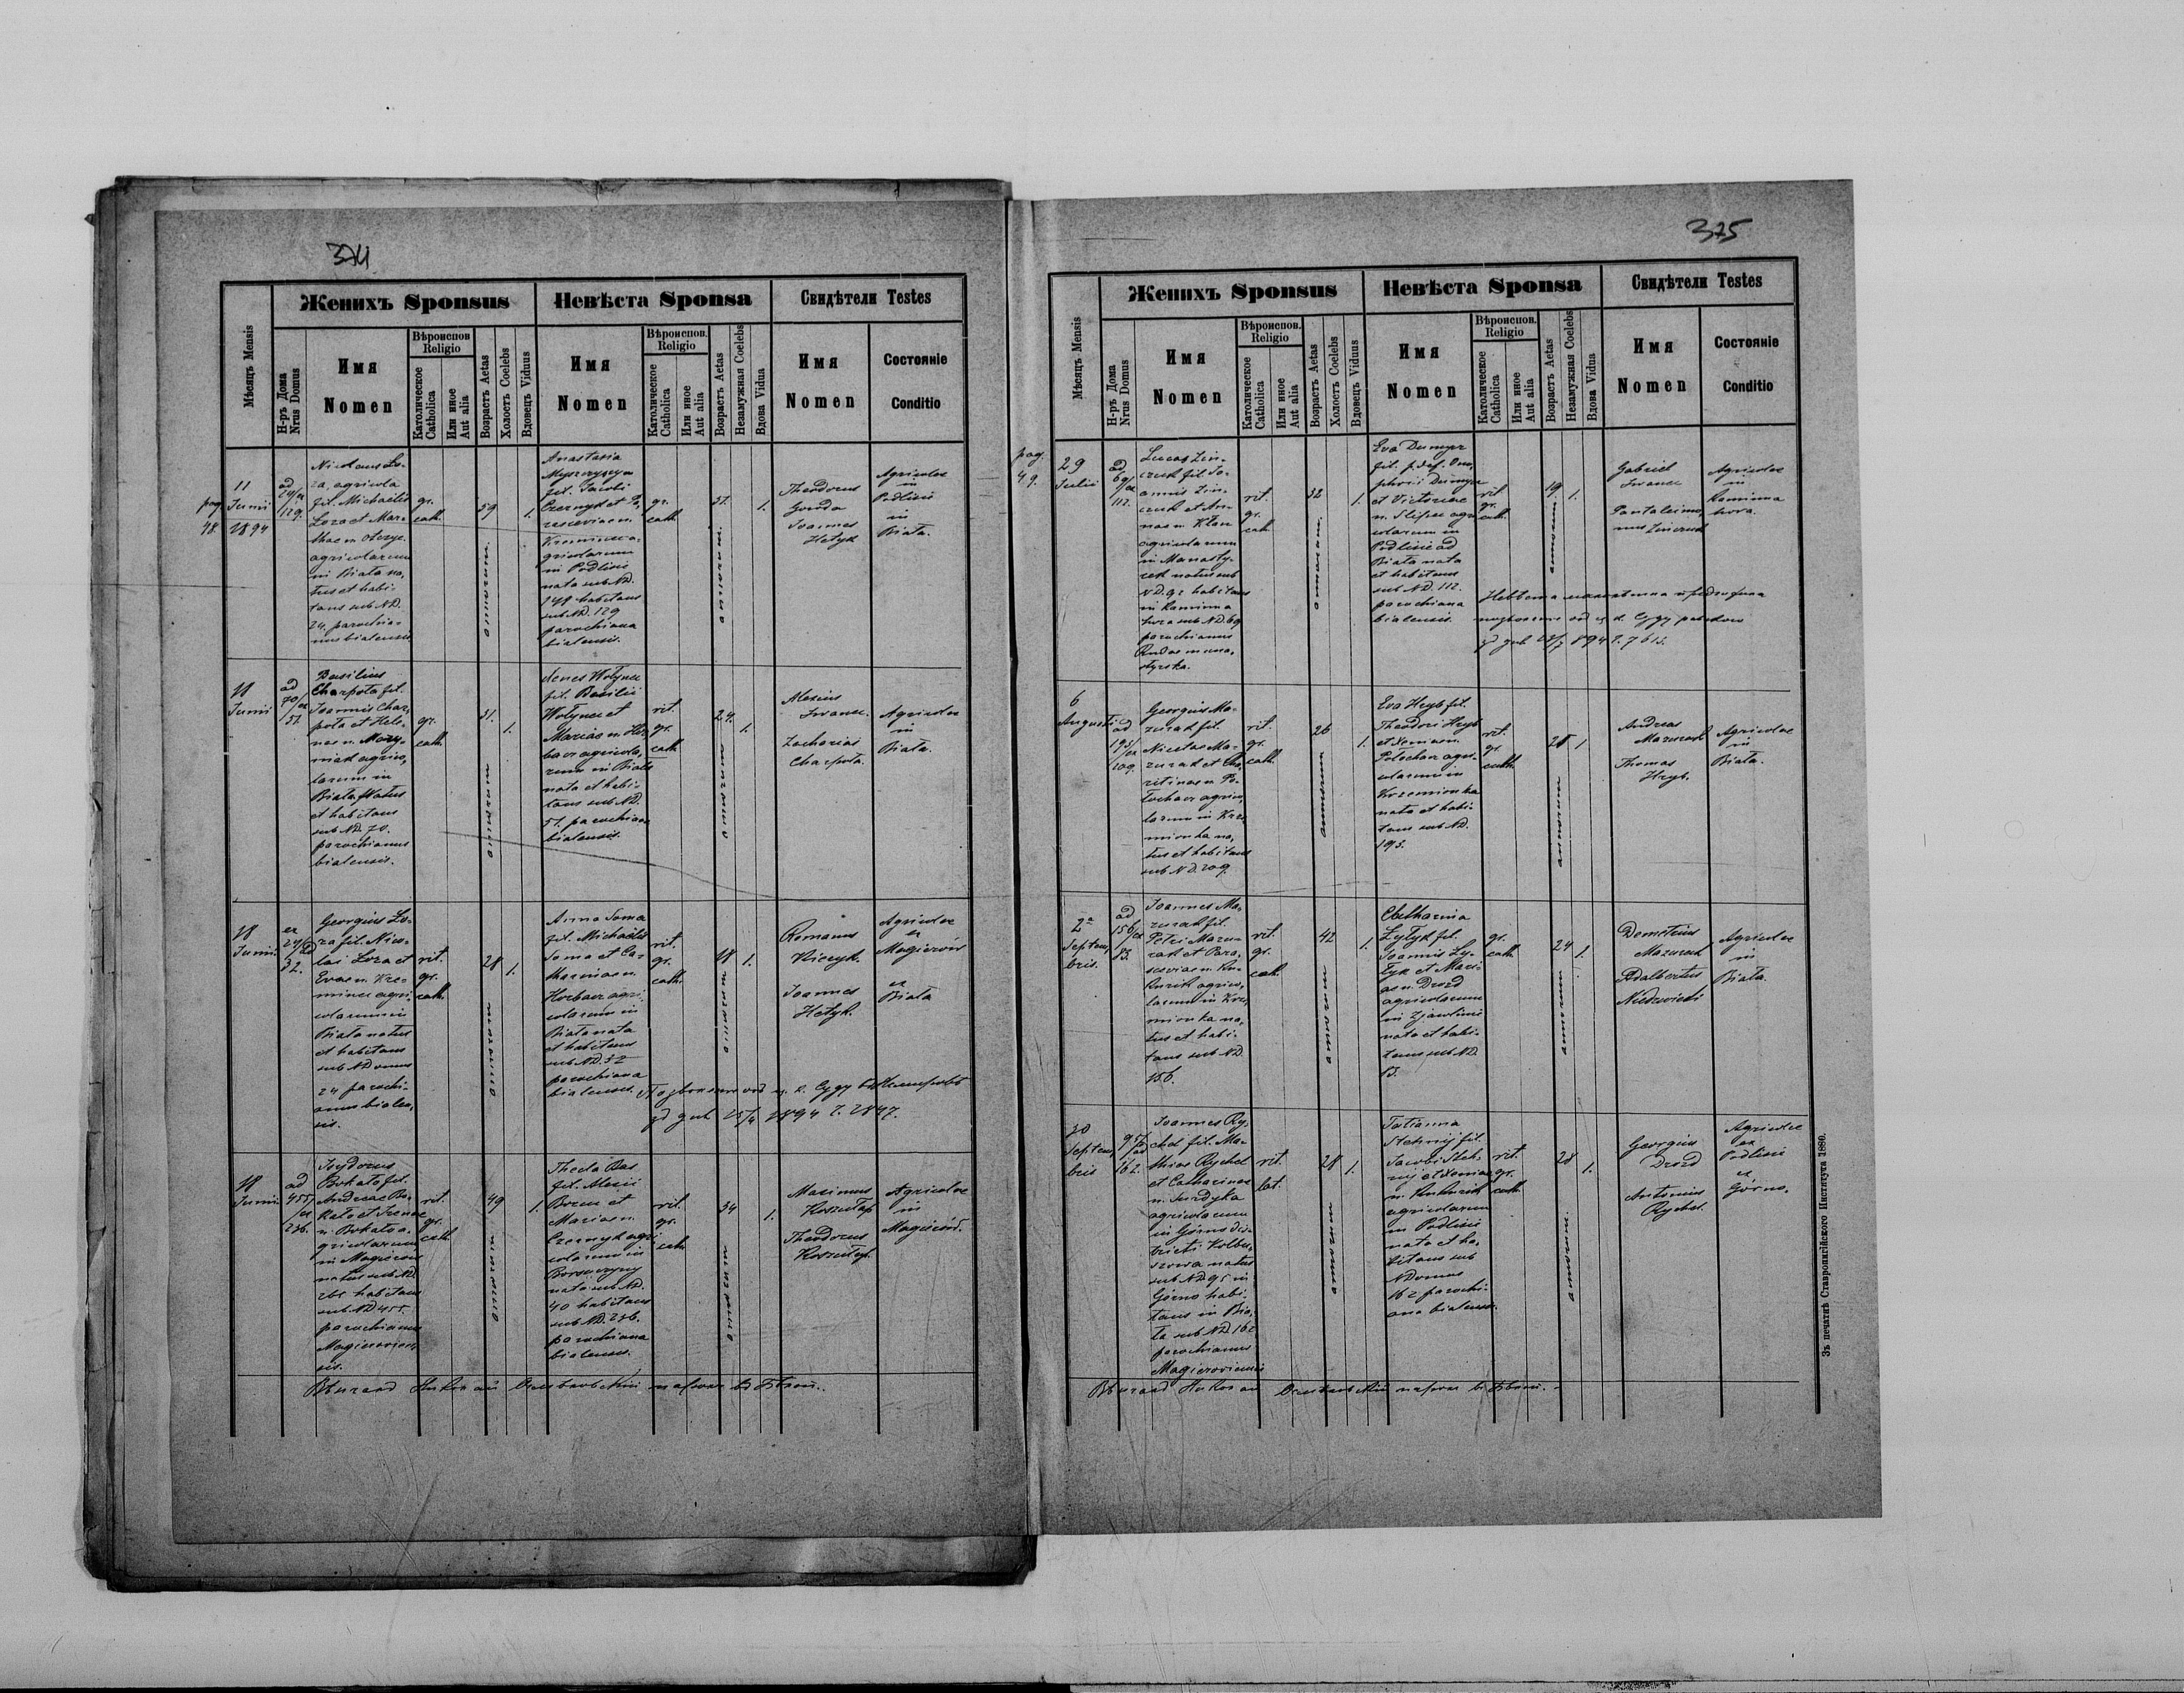 374
Женихъ Sponsus
Невѣста Sponsa
Свидѣтели Testes
Мѣсяцъ Mensis
Н-ръ Дома
Nrus Domus
Имя
Nomen
Вѣроиспов
Religio
Католическое
Catholica
Или иное
Aut alia
Возрастъ Aetas
Холостъ Coelebs
Вдовецъ Viduus
Имя
Nomen
Вѣроиспов.
Religio
Католическое
Catholica
Или иное
Aut alia
Возрастъ Aetas
Незамужная Coelebs
Вдова Vidua
Имя
Nomen
Состояніе
Conditio
pag.
48
11
Junii
1894
ad
24/ex
129.
Nicolaus Lo-
za, agricola
fil. Michaëlis
Loza et Mar-
agricolarum
in Biała na,
tus et habi-
tans sub ND.
24. parochia-
nus bialensis
gr.
cath.
59
annorum.
1.
Anastasia
fil. Jacobi
Czernyk et Pa,
rasceviae n.
gricolarum
in Podlisie
nata sub ND.
149 habitans
sub ND. 129
parochiana
bialensis.
gr.
cath.
annorum.
1.
Theodorus
Gouda
Joannes
Hetyk
Agricolae
in
Podlisie
in
Biała.
18
Junii
ad
70/ex
51.
Basilius
Charpota fil.
Joannis Char,
pota et Hele-
nae n. Mozy-
niak agrico,
larum in
Biała natus
et habitans
sub ND. 70.
parochianus
bialensis.
gr.
cath.
51.
annorum
1.
fil. Basilii
Wołynec et
Mariae n. Hor,
bacz agricola,
rum in Biała
nata et habi-
tans sub ND.
51. parochiana
bialensis.
rit.
gr.
cath.
24.
annorum
1.
Alexius
Iwanec.
Zacharias
Charpota.
Agricolae
in
Biała.
18
Junii
ex
24/ad
32.
Georgius Lo-
za fil. Nico-
lai Loza et
Evae n. Kre-
minec agri,
colarum in
Biała natus
et habitans
sub ND omus
24 parochi-
anus bialen,
sis.
rit.
gr.
cath.
28
annorum
1.
Anna Soma
fil. Michaëlis
Soma et Ca-
tharinae n.
Horbacz agri-
colarum in
Biała nata
et habitans
sub ND. 32
parochiana
bialensis.
rit.
gr.
cath.
18
annorum
1.
Romanus
Kiczyk.
Joannes
Hetyk.
Agricolae
ex
Magierów
ex
Biała
25/4 1894 2847.
18
Junii
ad
455/
ex
236.
Isydorus
Bokało fil.
Andreae Bo-
kało et Irenae
n. Bokało a-
gricolarum
in Magierow
natus sub ND
261. habitans
sub ND 455.
parochianus
Magierovien,
sis.
rit.
gr.
cath
49
annorum
1.
Thecla Bas
fil. Alexii
Borec et
Mariae n.
Czernyk agri-
colarum in
nata sub ND.
40 habitans
sub ND. 236.
parochiana
bialensis.
rit.
gr.
cath
34
annorum
1.
Maximus
Koszułap
Theodorus
Koszułap.
Agricolae
in
Magierów.
375
Женихъ Sponsus
Невѣста Sponsa
Свидѣтели Testes
Мѣсяцъ Mensis
Н-ръ Дома
Nrus Domus
Имя
Nomen
Вѣроиспов.
Religio
Католическое
Catholica
Или иное
Aut alia
Возрастъ Aetas
Холостъ Coelebs
Вдовецъ Viduus
Имя
Nomen
Вѣроиспов.
Religio
Католическое
Catholica
Или иное
Aut alia
Возрастъ Aetas
Незамужная Coelebs
Вдова Vidua
Имя
Nomen
Состояніе
Conditio
pag.
49.
29
Julii
ad
69/ex
112.
Lucas Zin-
czuk fil. Jo-
annis Zin-
czuk et An-
nae n. Klan
agricolarum
in Monasty-
rek natus sub
ND. 92 habitans
in Kaminna
hora sub ND. 69
parochianus
Rudae mona,
styrska.
rit.
gr.
cath
32
annorum.
1.
Eva Dumycz
fil. p. def. Onu,
phrii Dumycz
et Victoriae
n. Slipec agri
colarum in
Podlisie ad
Biała nata
et habitans
sub ND. 112.
parochiana
bialensis.
rit.
gr.
cath.
19
annorum
1.
Gabriel
Iwanec
Pantaleimo,
nus Zinczuk
Agricolae
in
Kaminna
hora.
6
Augusti
ad
193/ex
209.
Georgius Ma-
zurak fil.
Nicetae Ma-
zurak et Cha,
ritinae n. Po-
tochacz agrico,
larum in Krze,
mionka na,
tus et habitans
sub ND. 209.
rit.
gr.
cath.
26
annorum
1.
Eva Hryb fil.
Theodori Hryb
et Xeniae n.
Potochacz agri-
colarum in
Krzemionka
nata et habi-
tans sub ND.
193.
rit.
gr.
cath.
28
annorum
1
Andreas
Mazurak
Thomas
Hryb.
Agricolae
in
Biała.
2a
Septem,
bris.
ad
156/ex
13.
Joannes Ma,
zurak fil.
Petri Mazu-
rak et Para,
sceviae n. Ku-
kurik agrico,
larum in Krze,
mionka na,
tus et habi-
tans sub ND.
156.
rit.
gr.
cath.
42
annorum
1.
Catharina
Łytyk fil.
Joannis Ły-
tyk et Mari-
ae n. Drozd
agricolarum
in Zjawlinie
nata et habi-
tans sub ND.
13.
gr.
cath.
24
annorum
1.
Demetrius
Mazurak
Adalbertus
Niedzwiecki
Agricolae
in
Biała.
30
Septem,
bris
95/ex
ad
162.
Joannes Ry,
chel fil. Ma-
thiae Rychel
et Catharinae
n. Surdyka
agricolarum
in Górno dis-
tricti Kolbu,
szowa natus
sub ND 95 in
Górno habi-
tans in Bia,
ła sub ND. 162
parochianus
Magieroviensis
rit.
lat.
28
annorum
1.
Tatianna
Stehnij fil.
Jacobi Steh-
nij et Xeniae
n. Kukurik
agricolarum
in Podlisie
nata et ha,
bitans sub
NDomus
162 parochi-
ana bialensis.
rit.
gr.
cath.
28
annorum.
1.
Georgius
Drozd
Antonius
Rychel.
Agricolae
ex
Podlisie
ex
Górno.
Зъ печатнѣ Ставропигійского Института 1880.